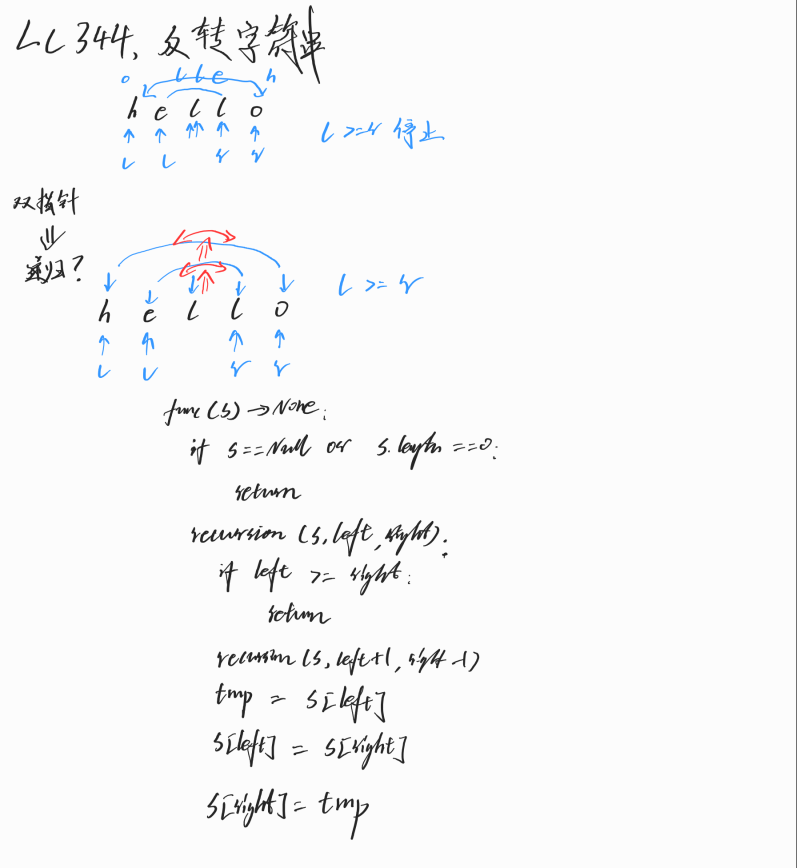 LC344、反转字符串
o l l e h
h e l l o
l l r r
l >= r 停止
双指针
⇓
递归?
h e l l o
l >= r
l l r r
func(s) → None:
if s==Null or s.length ==0:
return
recursion (s, left, right):
if left >= right:
return
recursion (s, left+1, right-1)
tmp = s[left]
s[left] = s[right]
s[right] = tmp